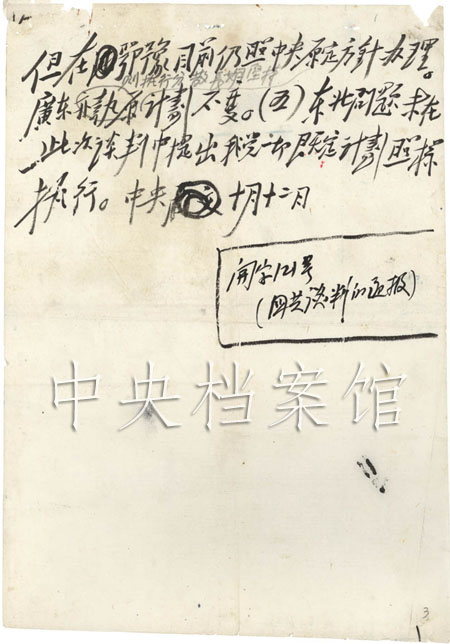 但在鄂豫目前仍照中央原定方針办理。
廣东
原計劃不变。（五）东北问题未在
此次谈判中提出我党一切既定计劃照样
执行。中央 十月十二日
开字121号
（国共谈判的通报）
中央档案馆
3